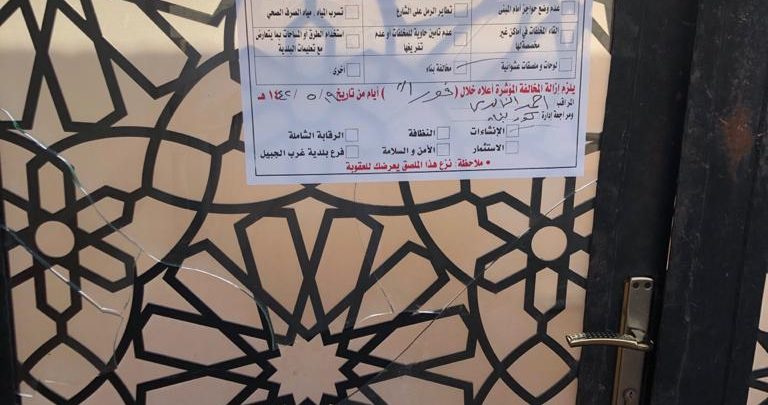 عدم وضع حواجز أمام المبنى تطاير الرمل على الشارع تسرب المياه , مياه الصرف الصحي
القاء المخلفات في أماكن غير مخصصة لها عدم تأمين حاوية للمخلفات أو عدم تفريغها استخدام الطرق او المساحات بما يتعارض مع تعليمات البلدية
لوحات و ملصقات عشوائية مخالفة بناء أخرى
يلزم إزالة المخالفة المؤشرة أعلاه خلال ( فوراً ) أيام من تاريخ ٩ / ٥ / ١٤٤٢ هـ
المراقب احمد
ومراجعة إدارة
الإنشاءات النظافة الرقابة الشاملة
الاستثمار الأمن و السلامة فرع بلدية غرب الجبيل
• ملاحظة : نزع هذا الملصق يعرضك للعقوبة